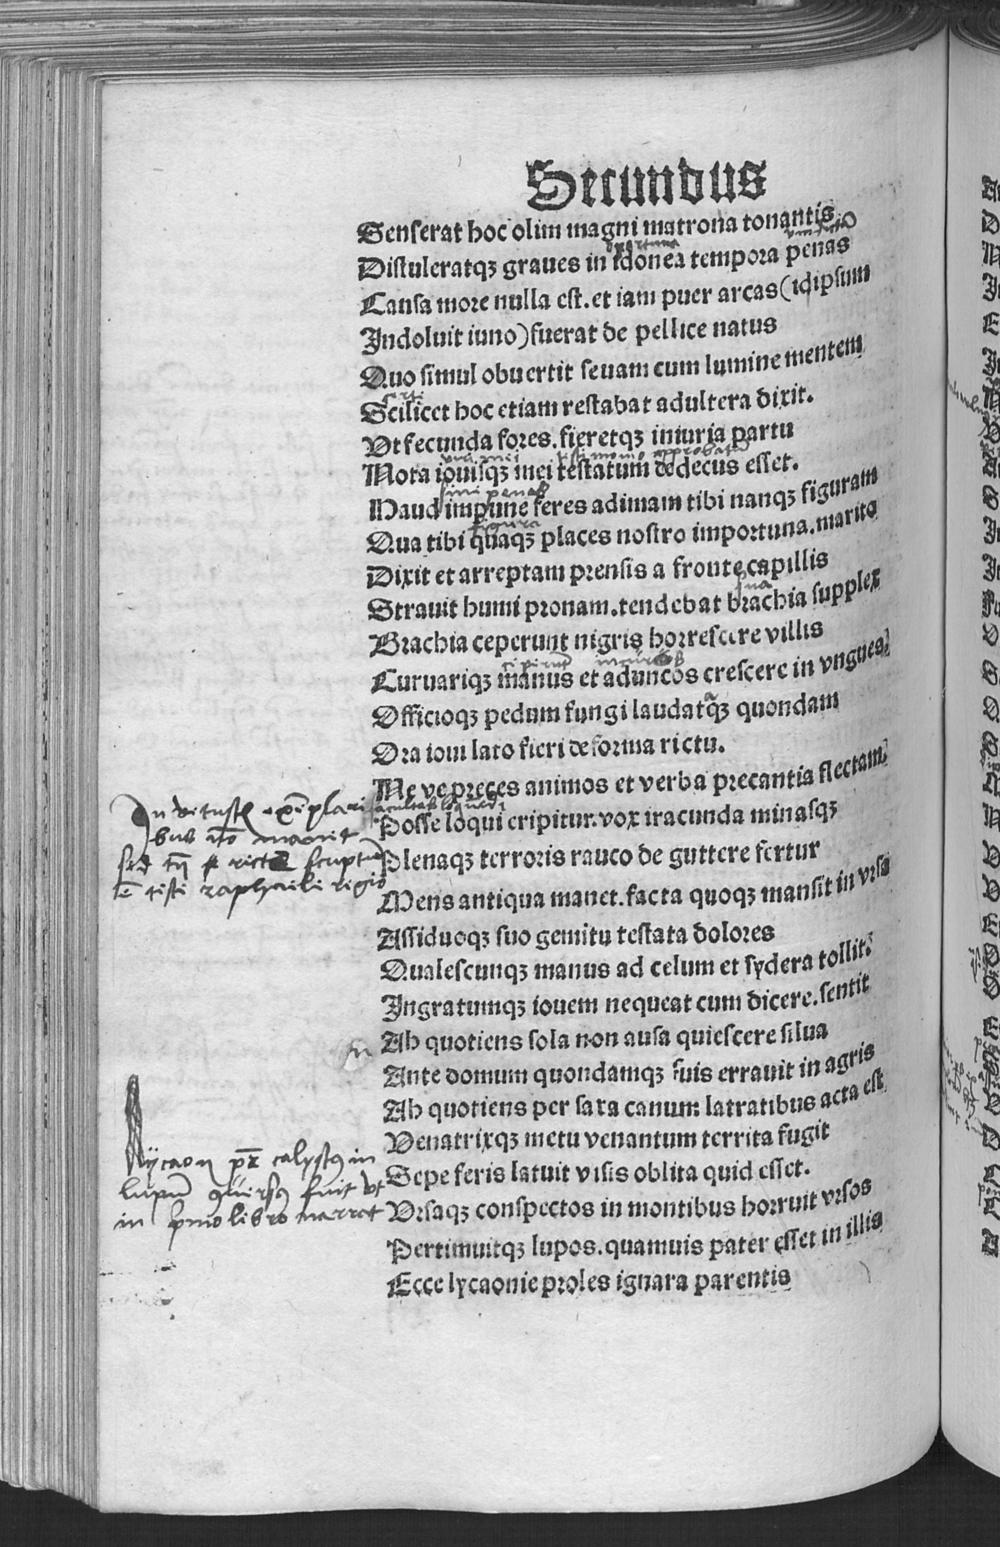 Secundus
Senserat hoc olim magni matrona tonantis
Distuleratqꝫ graues in idonea tempora penas
Causa more nulla est. et iam puer arcas (idipsum
Indoluit iuno) fuerat de pellice natus
Quo simul obuertit seuam cum lumine mentem
Scilicet hoc etiam restabat adultera dixit.
Ut fecunda fores. fieretqꝫ iniuria partu
Nota iouisqꝫ mei testatum dedecus esset.
Haud impune feres adimam tibi nanqꝫ figuram
Qua tibi quaqꝫ places nostro importuna. marito
Dixit et arreptam prensis a fronte capillis
Strauit humi pronam. tendebat brachia supplex
sua
Brachia ceperunt nigris horrescere villis
Curuariqꝫ manus et aduncos crescere in vngues
Officioqꝫ pedum fungi laudataqꝫ quondam
Ora ioui lato fieri deforma rictu.
Ne ve preces animos et verba precantia flectant
Posse loqui eripitur. vox iracunda minasqꝫ
Plenaqꝫ terroris rauco de guttere fertur
Mens antiqua manet. facta quoqꝫ mansit in vrsa
Assiduoqꝫ suo gemitu testata dolores
Qualescunqꝫ manus ad celum et sydera tollit
Ingratumqꝫ iouem nequeat cum dicere. sentit
Ah quotiens sola non ausa quiescere silua
Ante domum quondamqꝫ suis errauit in agris
Ah quotiens per saxa canum latratibus acta est
Uenatrixqꝫ metu venantum territa fugit
Sepe feris latuit visis oblita quid esset.
Ursaqꝫ conspectos in montibus horruit vrsos
Pertimuitqꝫ lupos. quamuis pater esset in illis
Ecce lycaonie proles ignara parentis
In vetustis exēplari
bus
scriptū
ē teste raphaele regio
Lycaon pr̄ calystꝰ in
lupū cōuersꝰ fuit vt
in pmo libro narrat